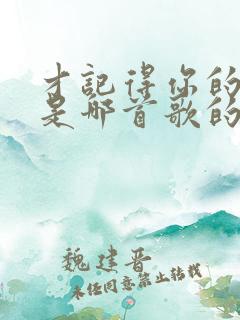 才记得你的
是哪首歌的
魏建晋
未经同意禁止转载